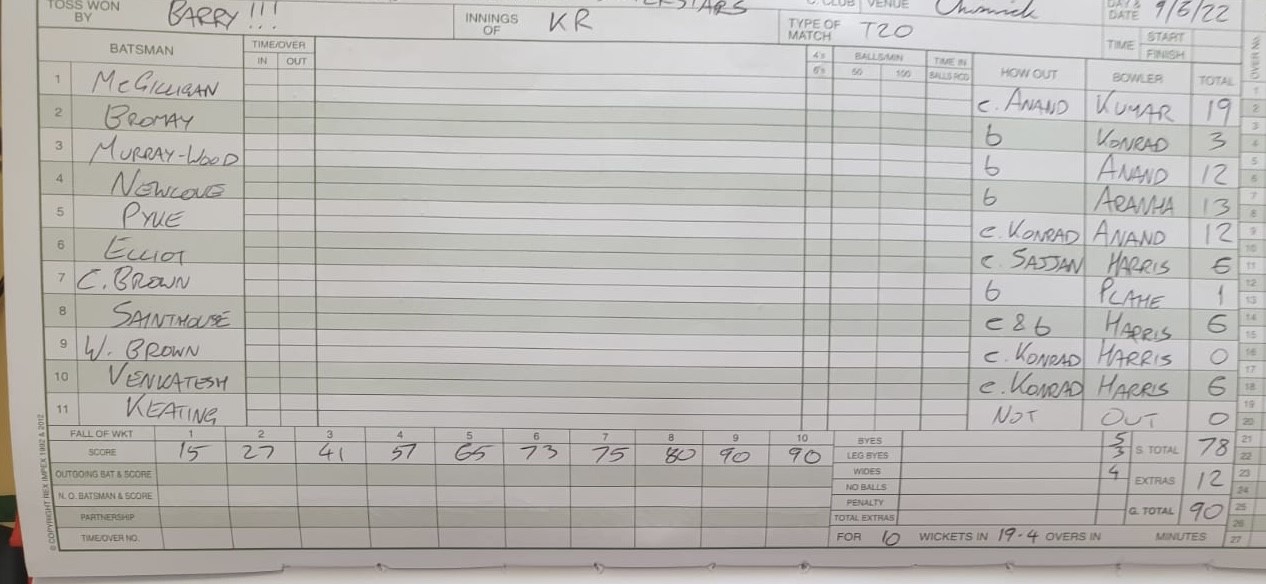 TOSS WON BY BARRY!!! INNINGS OF KR TYPE OF MATCH T20 CLUB VENUE Chiswick DAY & DATE 9/6/22
TIME START FINISH
BATSMAN TIME/OVER IN OUT 4's 6's BALLS/MIN 50 100 TIME IN BALLS RCD HOW OUT BOWLER TOTAL OVER NO.
1 McGILLIGAN c. ANAND KUMAR 19
2 BROMAY b KONRAD 3
3 MURRAY-WOOD b ANAND 12
4 NEWCOVE b ARANHA 13
5 PYKE c. KONRAD ANAND 12
6 ELLIOT c. SAJJAN HARRIS 6
7 C. BROWN b PLAHE 1
8 SAINTHOUSE c & b HARRIS 6
9 W. BROWN c. KONRAD HARRIS 0
10 VENKATESH c. KONRAD HARRIS 6
11 KEATING NOT OUT 0
FALL OF WKT 1 2 3 4 5 6 7 8 9 10
SCORE 15 27 41 57 65 73 75 80 90 90
OUTGOING BAT & SCORE
N. O. BATSMAN & SCORE
PARTNERSHIP
TIME/OVER NO.
BYES 5
LEG BYES 3
WIDES 4
NO BALLS
PENALTY
TOTAL EXTRAS
S. TOTAL 78
EXTRAS 12
G. TOTAL 90
FOR 10 WICKETS IN 19.4 OVERS IN MINUTES
1
2
3
4
5
6
7
8
9
10
11
12
13
14
15
16
17
18
19
20
21
22
23
24
25
26
27
© COPYRIGHT REX IMPEX 1992 & 2012